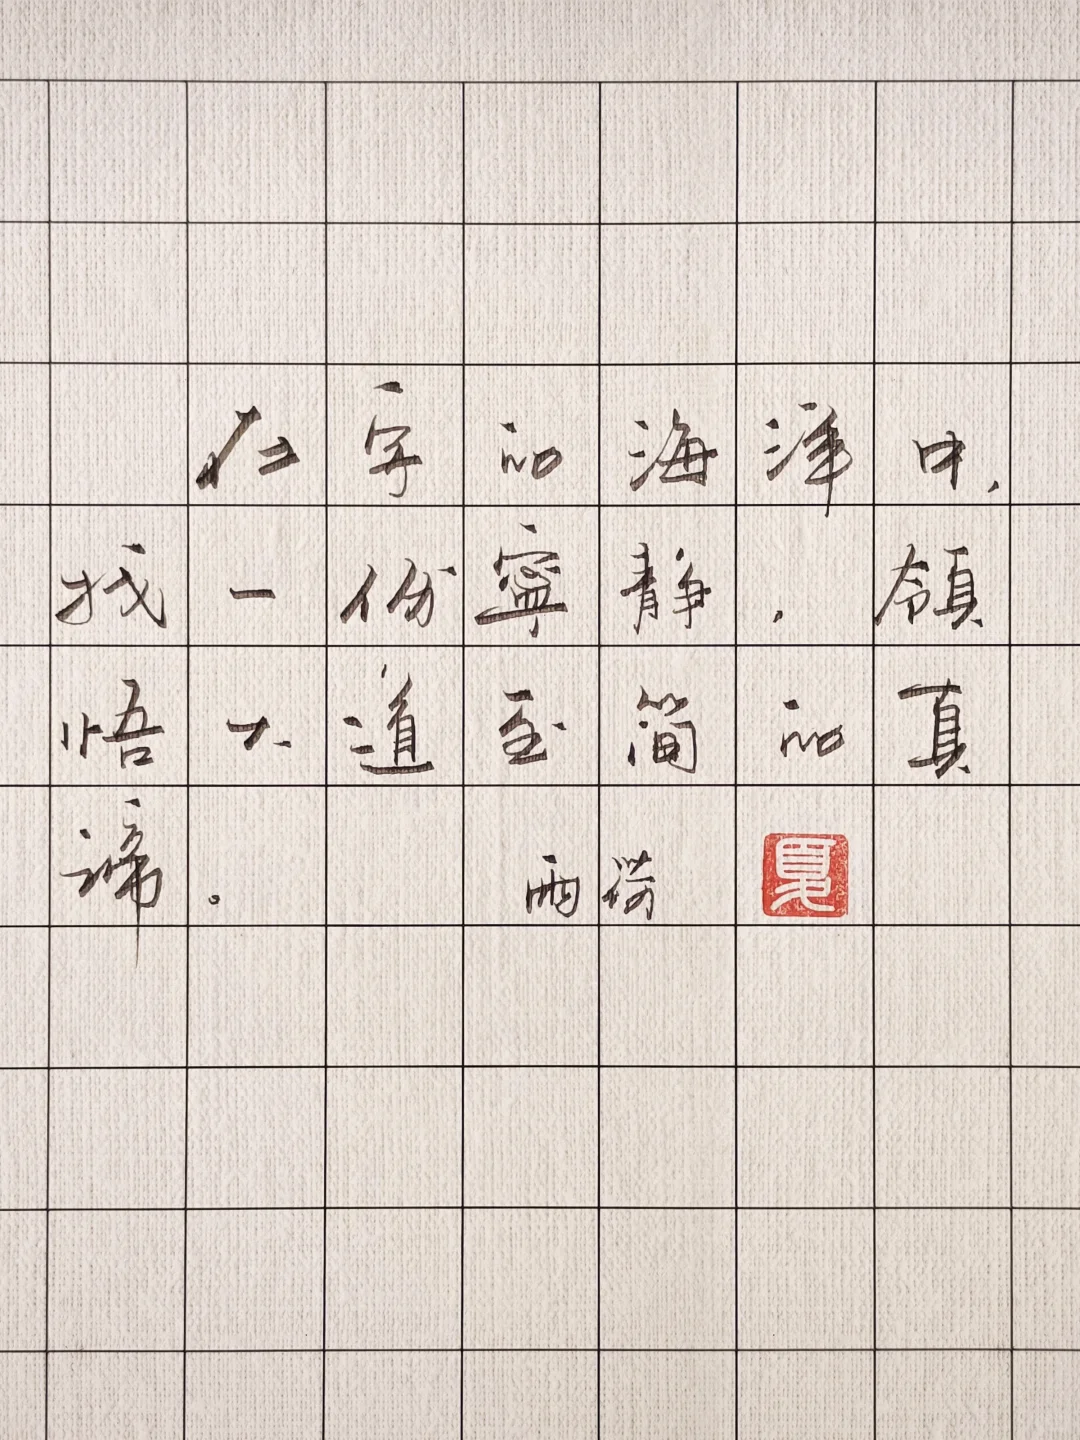 在字的海洋中，
找一份寧静，領
悟大道至简的真
諦。 雨荷 夏